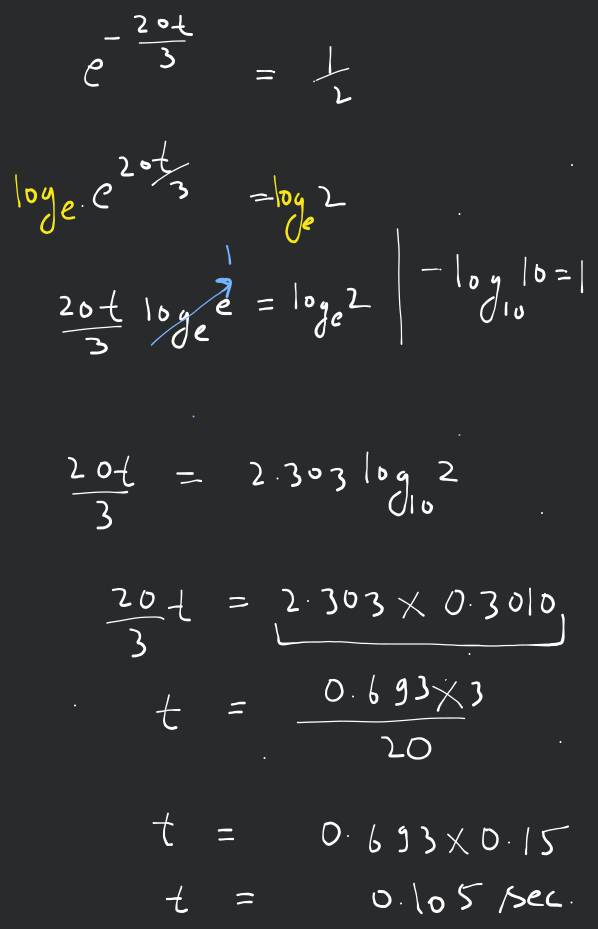 e^{-20t/3} = 1/2
log_e e^{20t/3} = log_e 2
20t/3 log_e e = log_e 2 | - log_10 10 = 1
1
20t/3 = 2.303 log_10 2
20/3 t = 2.303 × 0.3010
t = 0.693×3/20
t = 0.693×0.15
t = 0.105 sec.